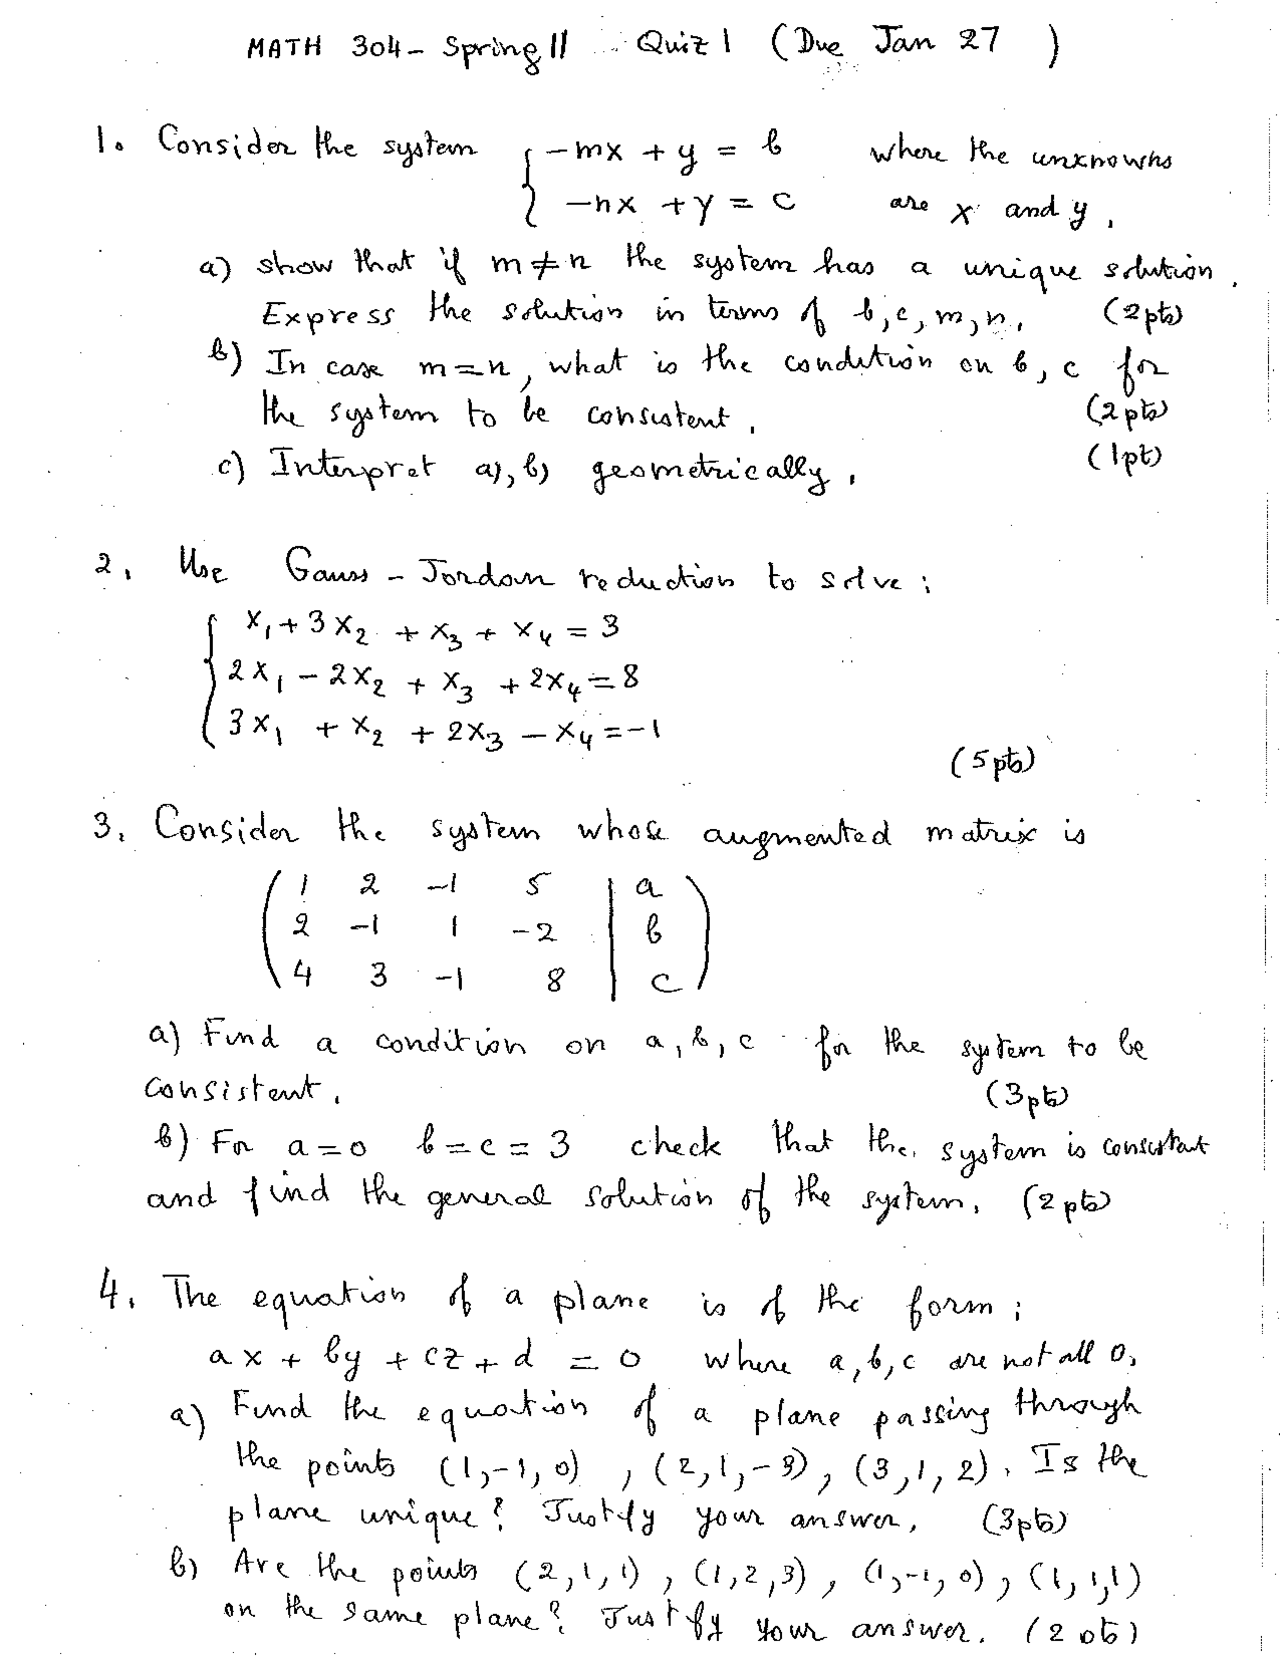 MATH 304 - Spring 11 Quiz 1 (Due Jan 27 )
1. Consider the system { -mx + y = b where the unknowns
-nx + y = c are x and y.
a) show that if m ≠ n the system has a unique solution.
Express the solution in terms of b, c, m, n. (2pts)
b) In case m = n, what is the condition on b, c for
the system to be consistent. (2pts)
c) Interpret a), b) geometrically. (1pt)
2. Use Gauss - Jordan reduction to solve:
x₁ + 3x₂ + x₃ + x₄ = 3
2x₁ - 2x₂ + x₃ + 2x₄ = 8
3x₁ + x₂ + 2x₃ - x₄ = -1
(5pts)
3. Consider the system whose augmented matrix is
1 2 -1 5 | a
2 -1 1 -2 | b
4 3 -1 8 | c
a) Find a condition on a, b, c for the system to be
consistent. (3pts)
b) For a = 0 b = c = 3 check that the system is consistent
and find the general solution of the system. (2pts)
4. The equation of a plane is of the form:
ax + by + cz + d = 0 where a, b, c are not all 0.
a) Find the equation of a plane passing through
the points (1, -1, 0), (2, 1, -3), (3, 1, 2). Is the
plane unique? Justify your answer. (3pts)
b) Are the points (2, 1, 1), (1, 2, 3), (1, -1, 0), (1, 1, 1)
on the same plane? Justify your answer. (2pts)